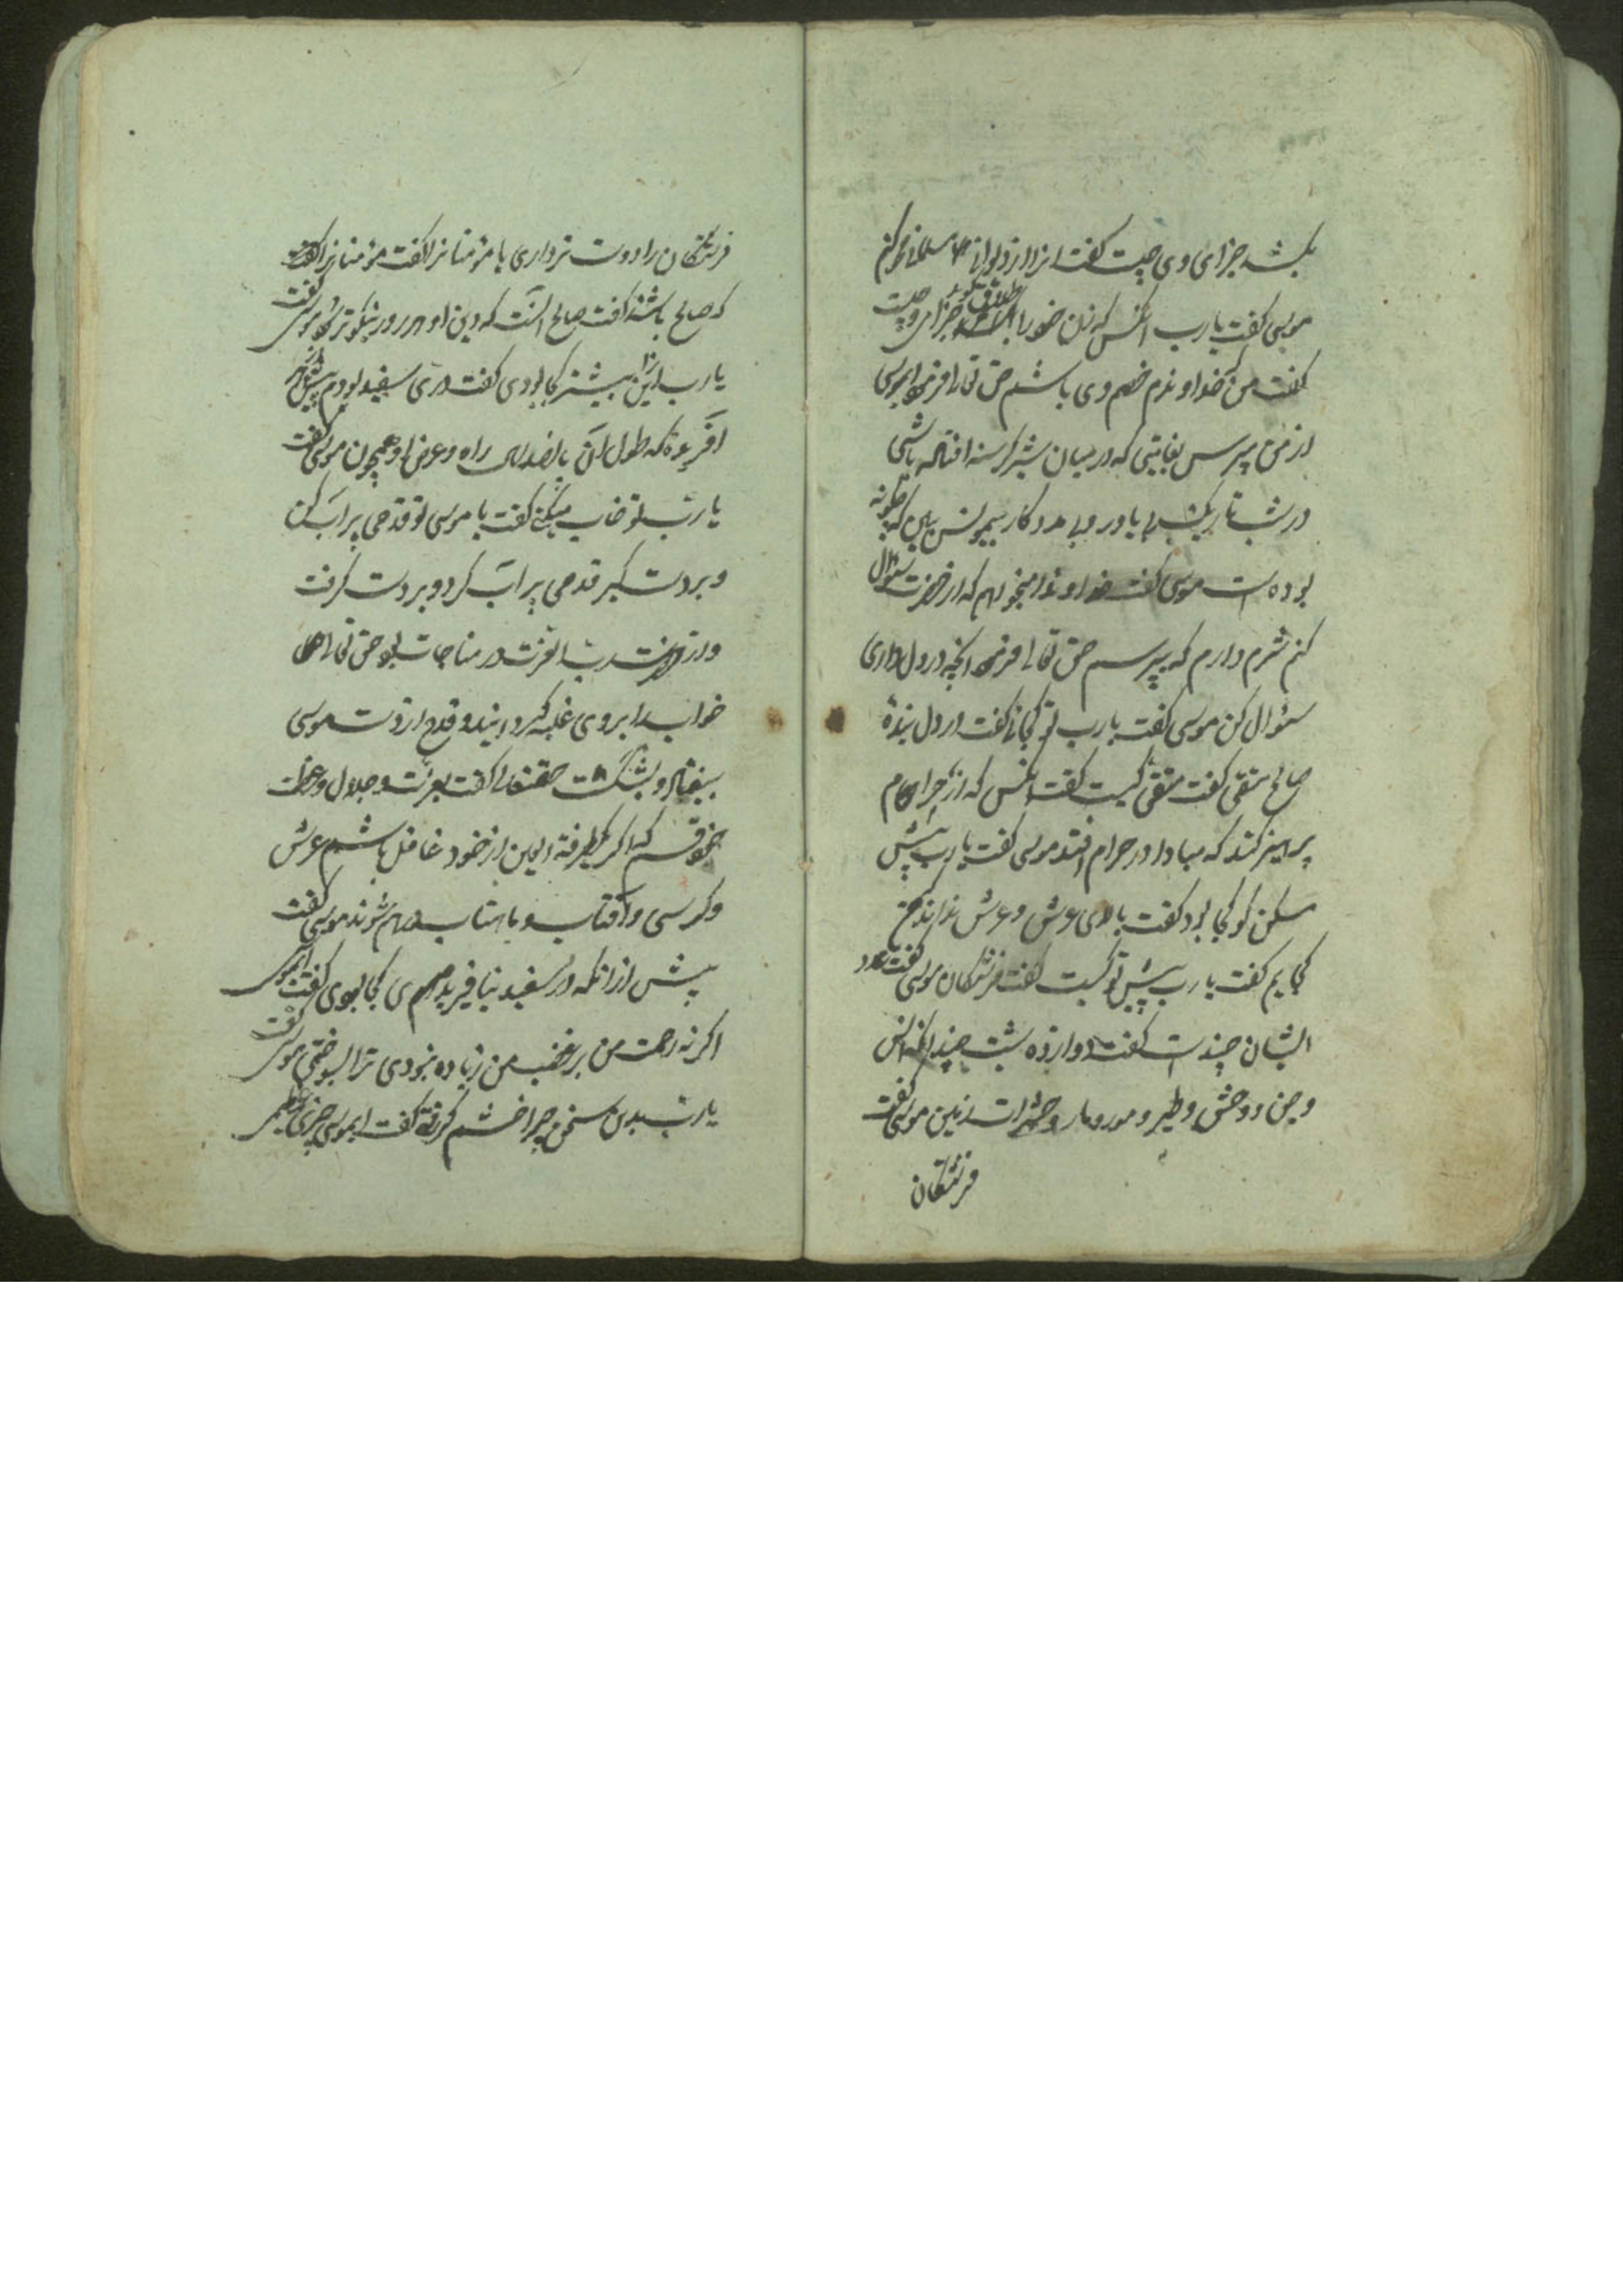 بکشد جزای وی چیست گفت از دیوان مسلمانی محو کنم
موسی گفت یارب انکس که زن خود را طلاق گوید جزا وی چیست
گفت من که خداوندم خصم وی باشم حق تعالی فرمود ایموسی
از من بپرس بغایتی که در میان شیر گرسنه افتاده باشی
در شب تاریک بی یاور و بی مددکار بیم و ترس ببین که چگونه
بوده است موسی گفت خداوندا میخواهم که از حضرت سئوال
کنم شرم دارم که بپرسم حق تعالی فرمود انچه در دل داری
سئوال کن موسی گفت یارب تو کجائی گفت در دل بندهٔ
صالح متقی گفت متقی کیست گفت انکس که از حرام
پرهیز کند که مبادا در حرام افتد موسی گفت یارب پیش
مسکن تو کجا بود گفت بالای عرش و عرش نداند که من
کجایم گفت یارب پیش تو کیست گفت فرشتگان موسی گفت عدد
ایشان چند است گفت دوازده بیست چندانکه انس
و جن و وحش و طیر و مور و مار و حشرات زمین موسی گفت
فرشتگان
فرشتگان را دوست تر داری یا مؤمنانرا گفت مؤمنانرا گفت
که صالح باشند گفت صالح انست که دین او هر روز نیکوتر شود موسی گفت
یارب ازین پیشتر کجا بودی گفت دری سفید بودم پیش از
افریده که طول ان پانصد ساله راه و عرض او همچون موسی گفت
یارب تو خواب میکنی گفت یا موسی تو قدحی پر اب کن
و بر دست گیر قدحی پر اب کرد و بر دست گرفت
و در حضرت رب العزت در مناجات بود حق تعالی
خواب را بر وی غلبه گردانید و قدح از دست موسی
بیفتاد و بشکست حقتعالی گفت بعزت و جلال و عظمت
خود قسم که اگر یک طرفة العین از خود غافل باشم عرش
و کرسی و افتاب و ماهتاب در هم شوند موسی گفت
پیش از انکه در سفید نیافریده بودی کجا بودی گفت ایموسی
اگر نه رحمت من بر غضب من زیاده نبودی ترا بسوختمی موسی گفت
یارب بدین سخن چرا خشم گرفتی گفت ایموسی چیزی عظیم